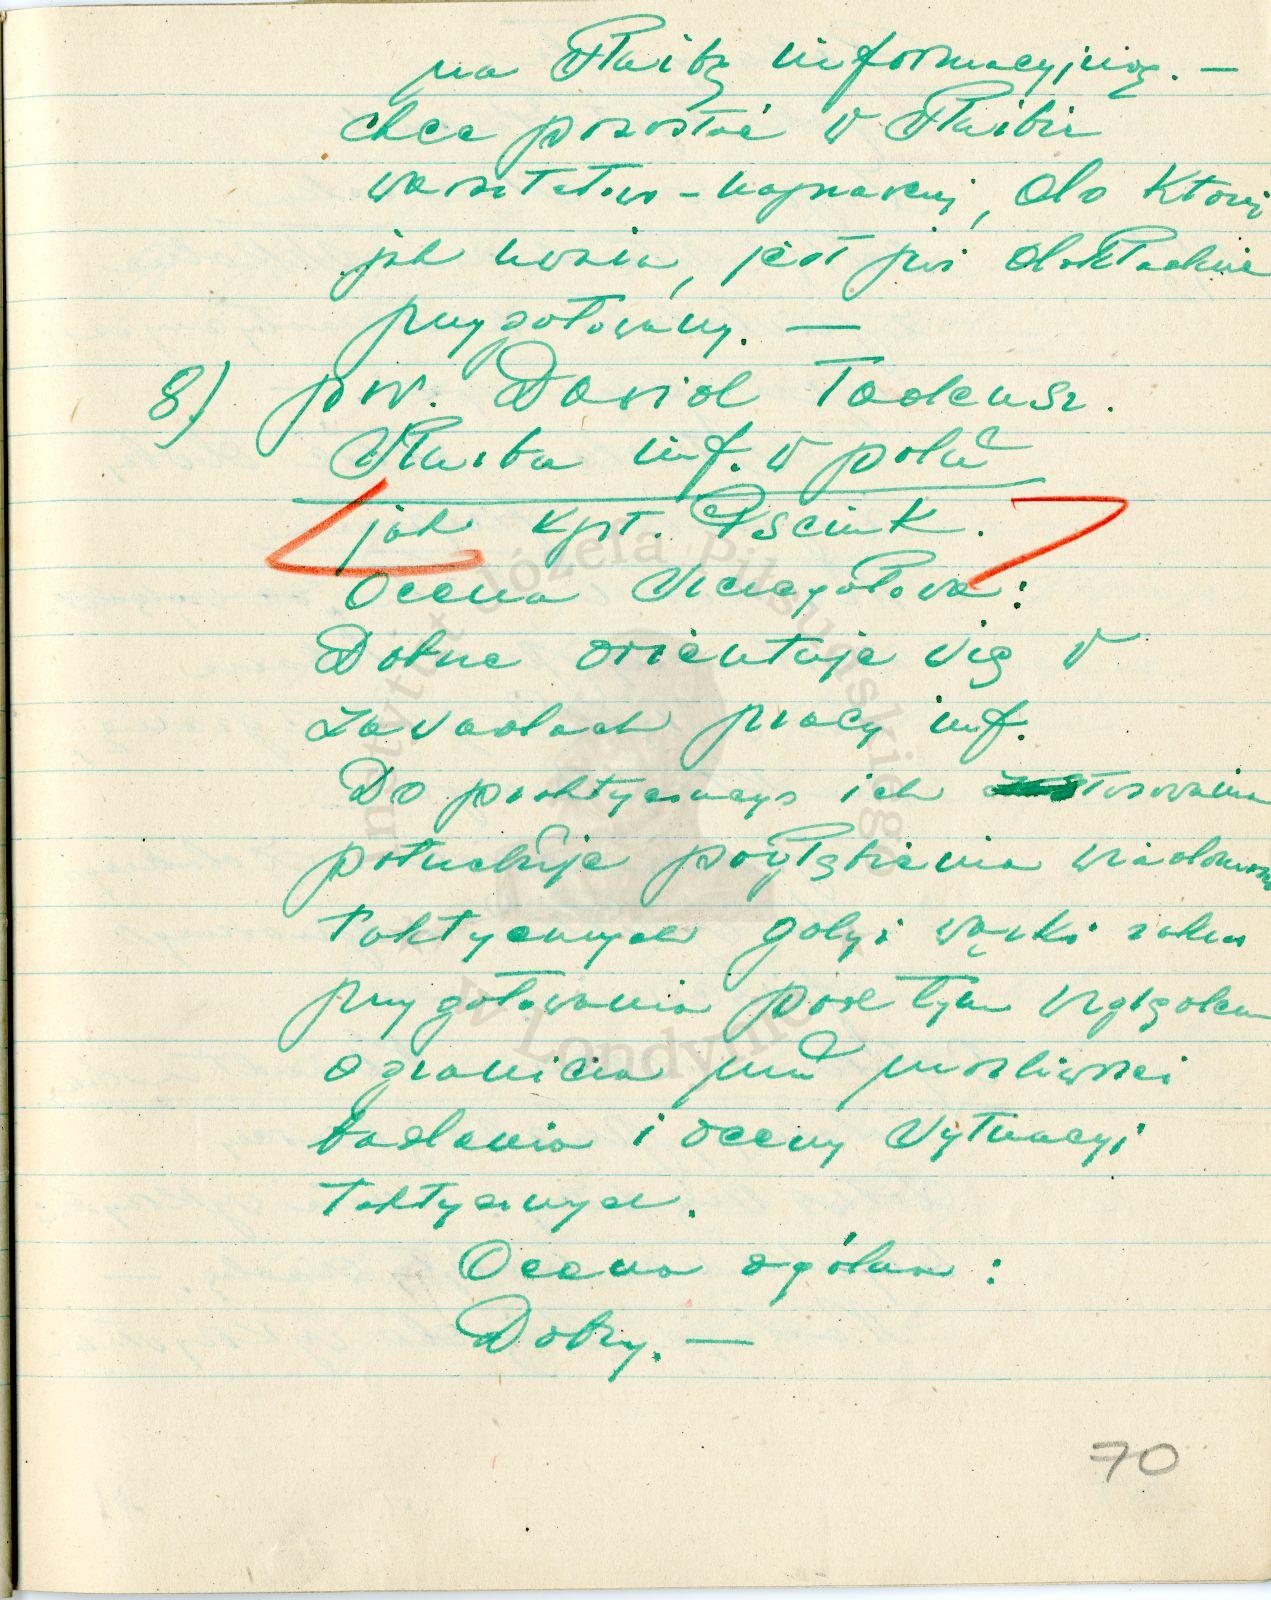 na służbę informacyjną. —
chce pozostać w służbie
warsztatowo-naprawczej, do której
jak uważa, jest już dokładnie
przygotowany. —
8) por. Dawid Tadeusz.
Służba inf. w polu
jak kpt. Pścink.
Ocena szczegółowa:
Dobrze orientuje się w
zasadach pracy inf.
Do praktycznego ich stosowania
potrzebuje pogłębienia wiadomości
taktycznych gdyż wąski zakres
przygotowania pod tym względem
ogranicza mu możliwości
badania i oceny sytuacji
taktycznych.
Ocena ogólna:
Dobry. —
70
Instytut Józefa Piłsudskiego
w Londynie